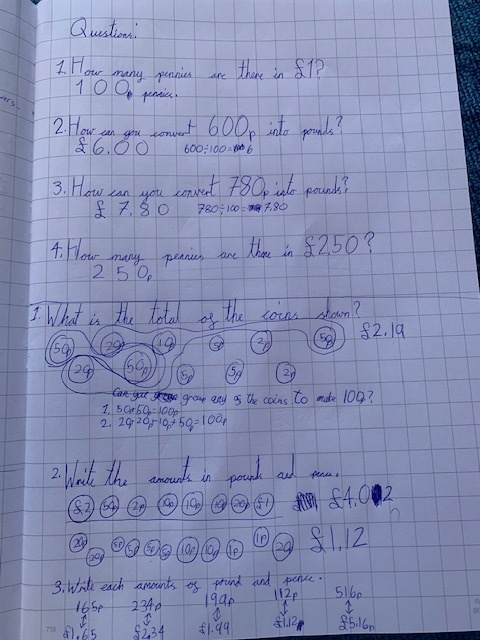 Questions:
1. How many pennies are there in £1?
100p pennies.
2. How can you convert 600p into pounds?
£6.00 600÷100= 6
3. How can you convert 780p into pounds?
£7.80 780÷100= 7.80
4. How many pennies are there in £2.50?
250p
1. What is the total of the coins shown?
50p 20p 10p 5p 2p 50p £2.19
20p 50p 5p 5p 2p
Can you group any of the coins to make 100?
1. 50p+50p=100p
2. 20p+20p+10p+50p=100p
2. Write the amounts in pounds and pence.
£2 50p 2p 10p 10p 10p 20p £1 £4.02
20p 20p 5p 5p 5p 5p 10p 10p 1p 1p 20p £1.12
3. Write each amounts of pound and pence.
165p 234p 199p 112p 516p
£1.65 £2.34 £1.99 £1.12p £5.16p